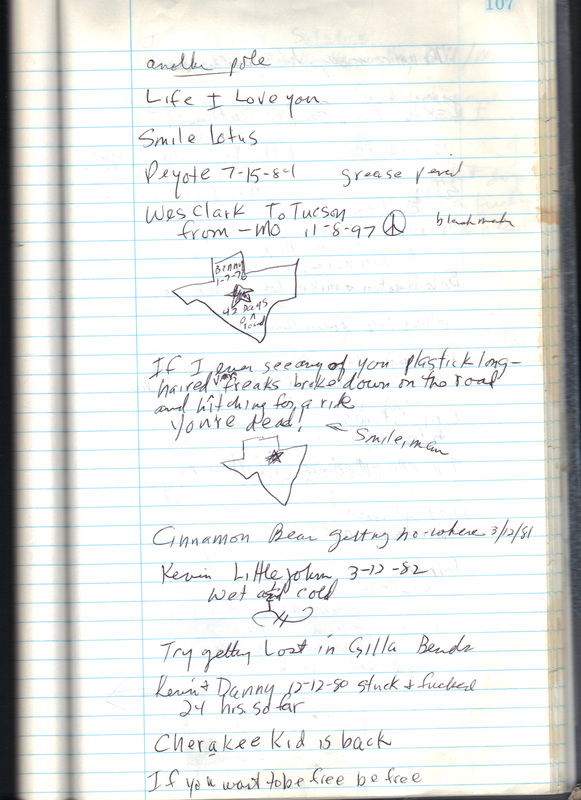 107
another pole
Life I Love you
Smile lotus
Peyote 7-15-81 grease pencil
Wes Clark To Tucson
from - MO 11-8-97 black mark
Benny
1-7-76
45 Days
on
road
If I ever see any of you plastick long-
haired freaks broke down on the road
and hitching for a ride
You're dead! Smile, man
Cinnamon Bear getting no-where 3/12/81
Kevin Littlejohn 3-12-82
Wet and cold
Try getting Lost in Gilla Bends
Kevin + Danny 12-12-80 stuck + fucked
24 hrs so far
Cherakee Kid is back
If you want to be free be free